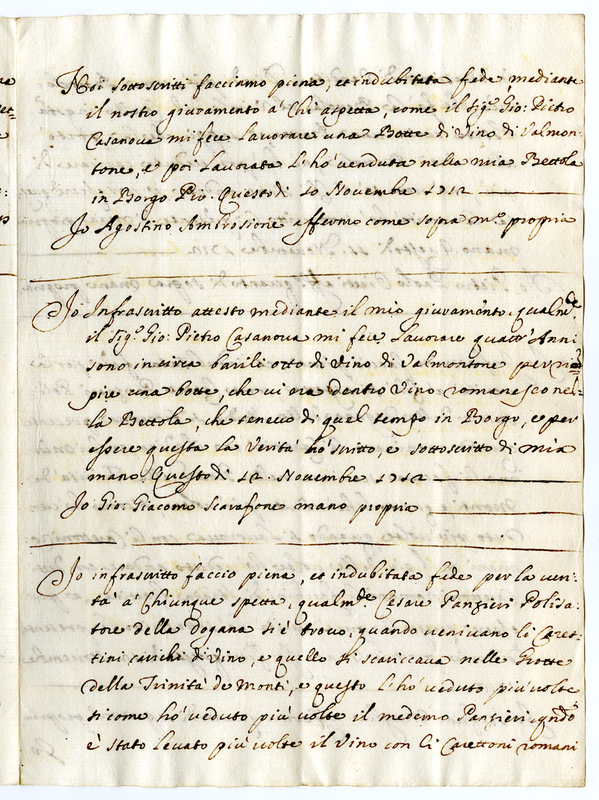 Noi sottoscritti facciamo piena, et indubitata fede mediante
il nostro giuramento à Chi aspetta, come il Sig.r Gio: Pietro
Casanova mi fece Lavorare una Botte di Vino di Valmon-
tone, e poi Lavorata L'hò venduta nella mia Bettola
in Borgo Pio. Questo dì 10 Novembre 1712
Io Agostino Ambrosione affermo come sopra m.o propria
Io Infrascritto attesto mediante il mio giuram.to, qualm.te
il Sig.r Gio: Pietro Casanova mi fece Lavorare quattr'Anni
sono in circa barili otto di Vino di Valmontone per riẽ-
pire una botte, che vi era dentro Vino romanesco nel-
la Bettola, che tenevo di quel tempo in Borgo, e per
essere questa la Verità hò scritto, e sottoscritto di mia
mano. Questo dì 12. Novembre 1712
Io Gio: Giacomo Scarafone mano propria
Io infrascritto faccio piena, et indubitata fede per la veri-
tà à Chiunque spetta, qualm.te Cesare Panzieri Polisa-
tore della dogana si è trovo, quando venivano li Caret-
tini carichi di Vino, e quello si scariccava nelle Grotte
della Trinità de Monti, e questo L'hò veduto più volte
si come hò veduto più volte il medemo Panzieri, qndo
è stato Levato più volte il Vino con Li Carettoni romani